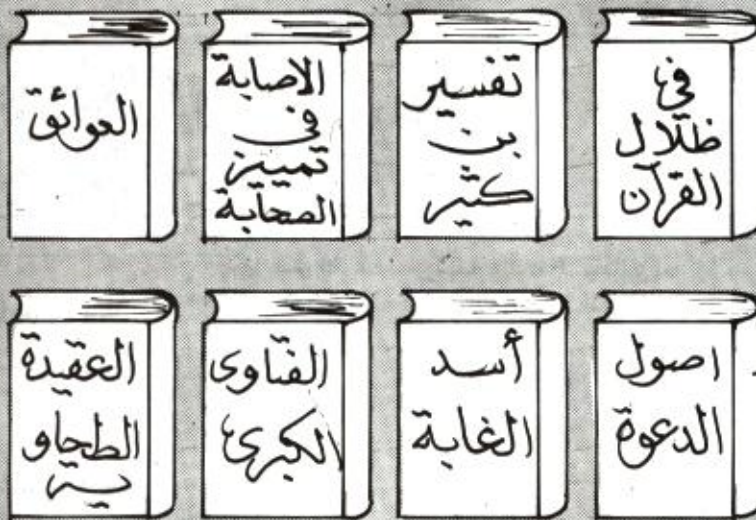 في
ظلال
القرآن
تفسير
بن
كثير
الاصابة
في
تميز
الصحابة
العوائق
اصول
الدعوة
أسد
الغابة
الفتاوى
الكبرى
العقيدة
الطحاو
ية